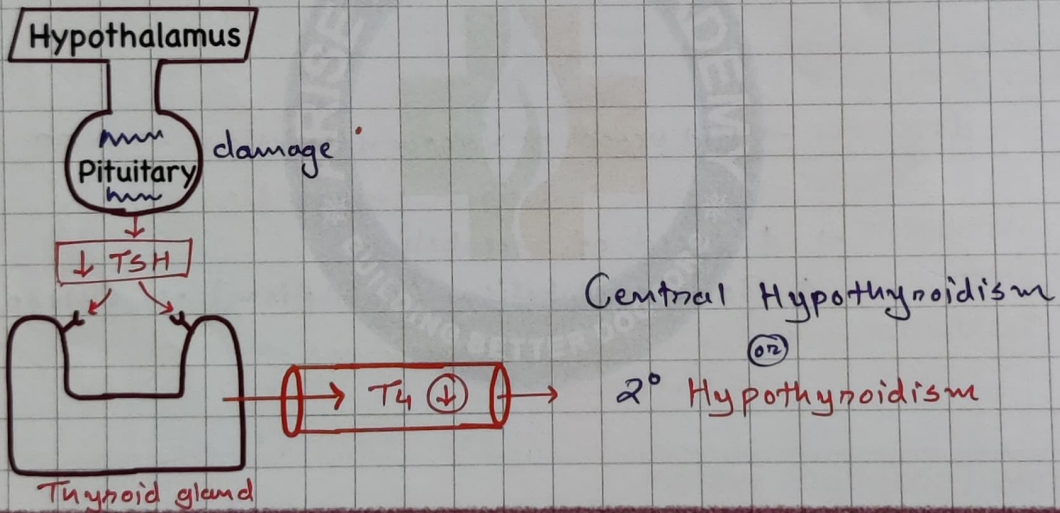 Hypothalamus
Pituitary
damage
↓ TSH
T4 ↓
Thyroid gland
Central Hypothyroidism
or
2° Hypothyroidism
BUILDING BETTER DOCTORS